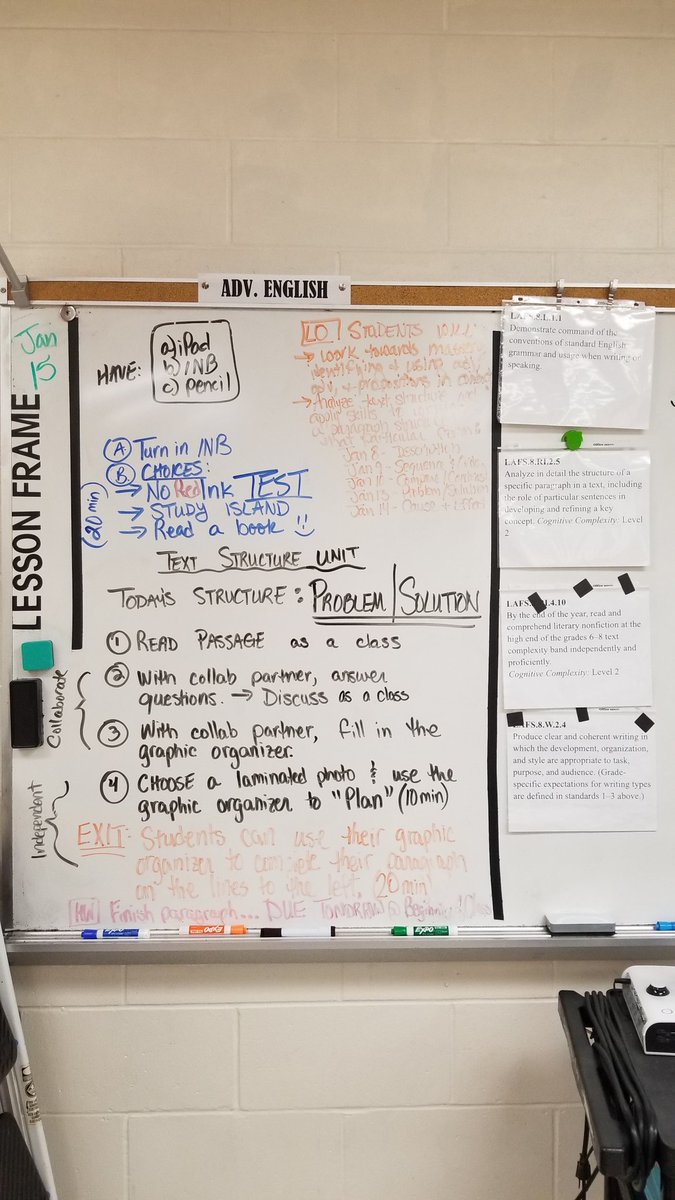 ADV. ENGLISH
Jan
15
LESSON FRAME
HAVE:
a) iPad
b) INB
c) pencil
LO STUDENTS WILL
→ work towards mastery
identifying & using
& prepositions in
→ Analyze text structure, and
apply skills
a paragraph
Jan 8 - Description
Jan 9 - Sequence
Jan 10 - Compare/Contrast
Jan 15 - Problem/Solution
Jan 14 - Cause + Effect
A Turn in INB
B. CHOICES:
(20 min)
→ No Red Ink TEST
→ STUDY ISLAND
→ Read a book !!
TEXT STRUCTURE UNIT
TODAY'S STRUCTURE: PROBLEM/SOLUTION
1 READ PASSAGE as a class
Collaborate
2 With collab partner, answer
questions. → Discuss as a class
3 With collab partner, fill in the
graphic organizer.
Independent
4 CHOOSE a laminated photo & use the
graphic organizer to "Plan" (10 min)
EXIT: Students can use their graphic
organizer to complete their paragraph
on the lines to the left. (20 min)
HW Finish paragraph... DUE TOMORROW @ Beginning of Class
LAFS.8.L.1.1
Demonstrate command of the
conventions of standard English
grammar and usage when writing or
speaking.
LAFS.8.RI.2.5
Analyze in detail the structure of a
specific paragraph in a text, including
the role of particular sentences in
developing and refining a
key concept. Cognitive Complexity: Level
2
LAFS. .4.10
By the end of the year, read and
comprehend literary nonfiction at
the high end of the grades 6–8 text
complexity band independently and
proficiently.
Cognitive Complexity: Level 2
LAFS.8.W.2.4
Produce clear and coherent writing in
which the development, organization,
and style are appropriate to task,
purpose, and audience. (Grade-
specific expectations for writing types
are defined in standards 1–3 above.)
EXPO
EXPO
EXPO